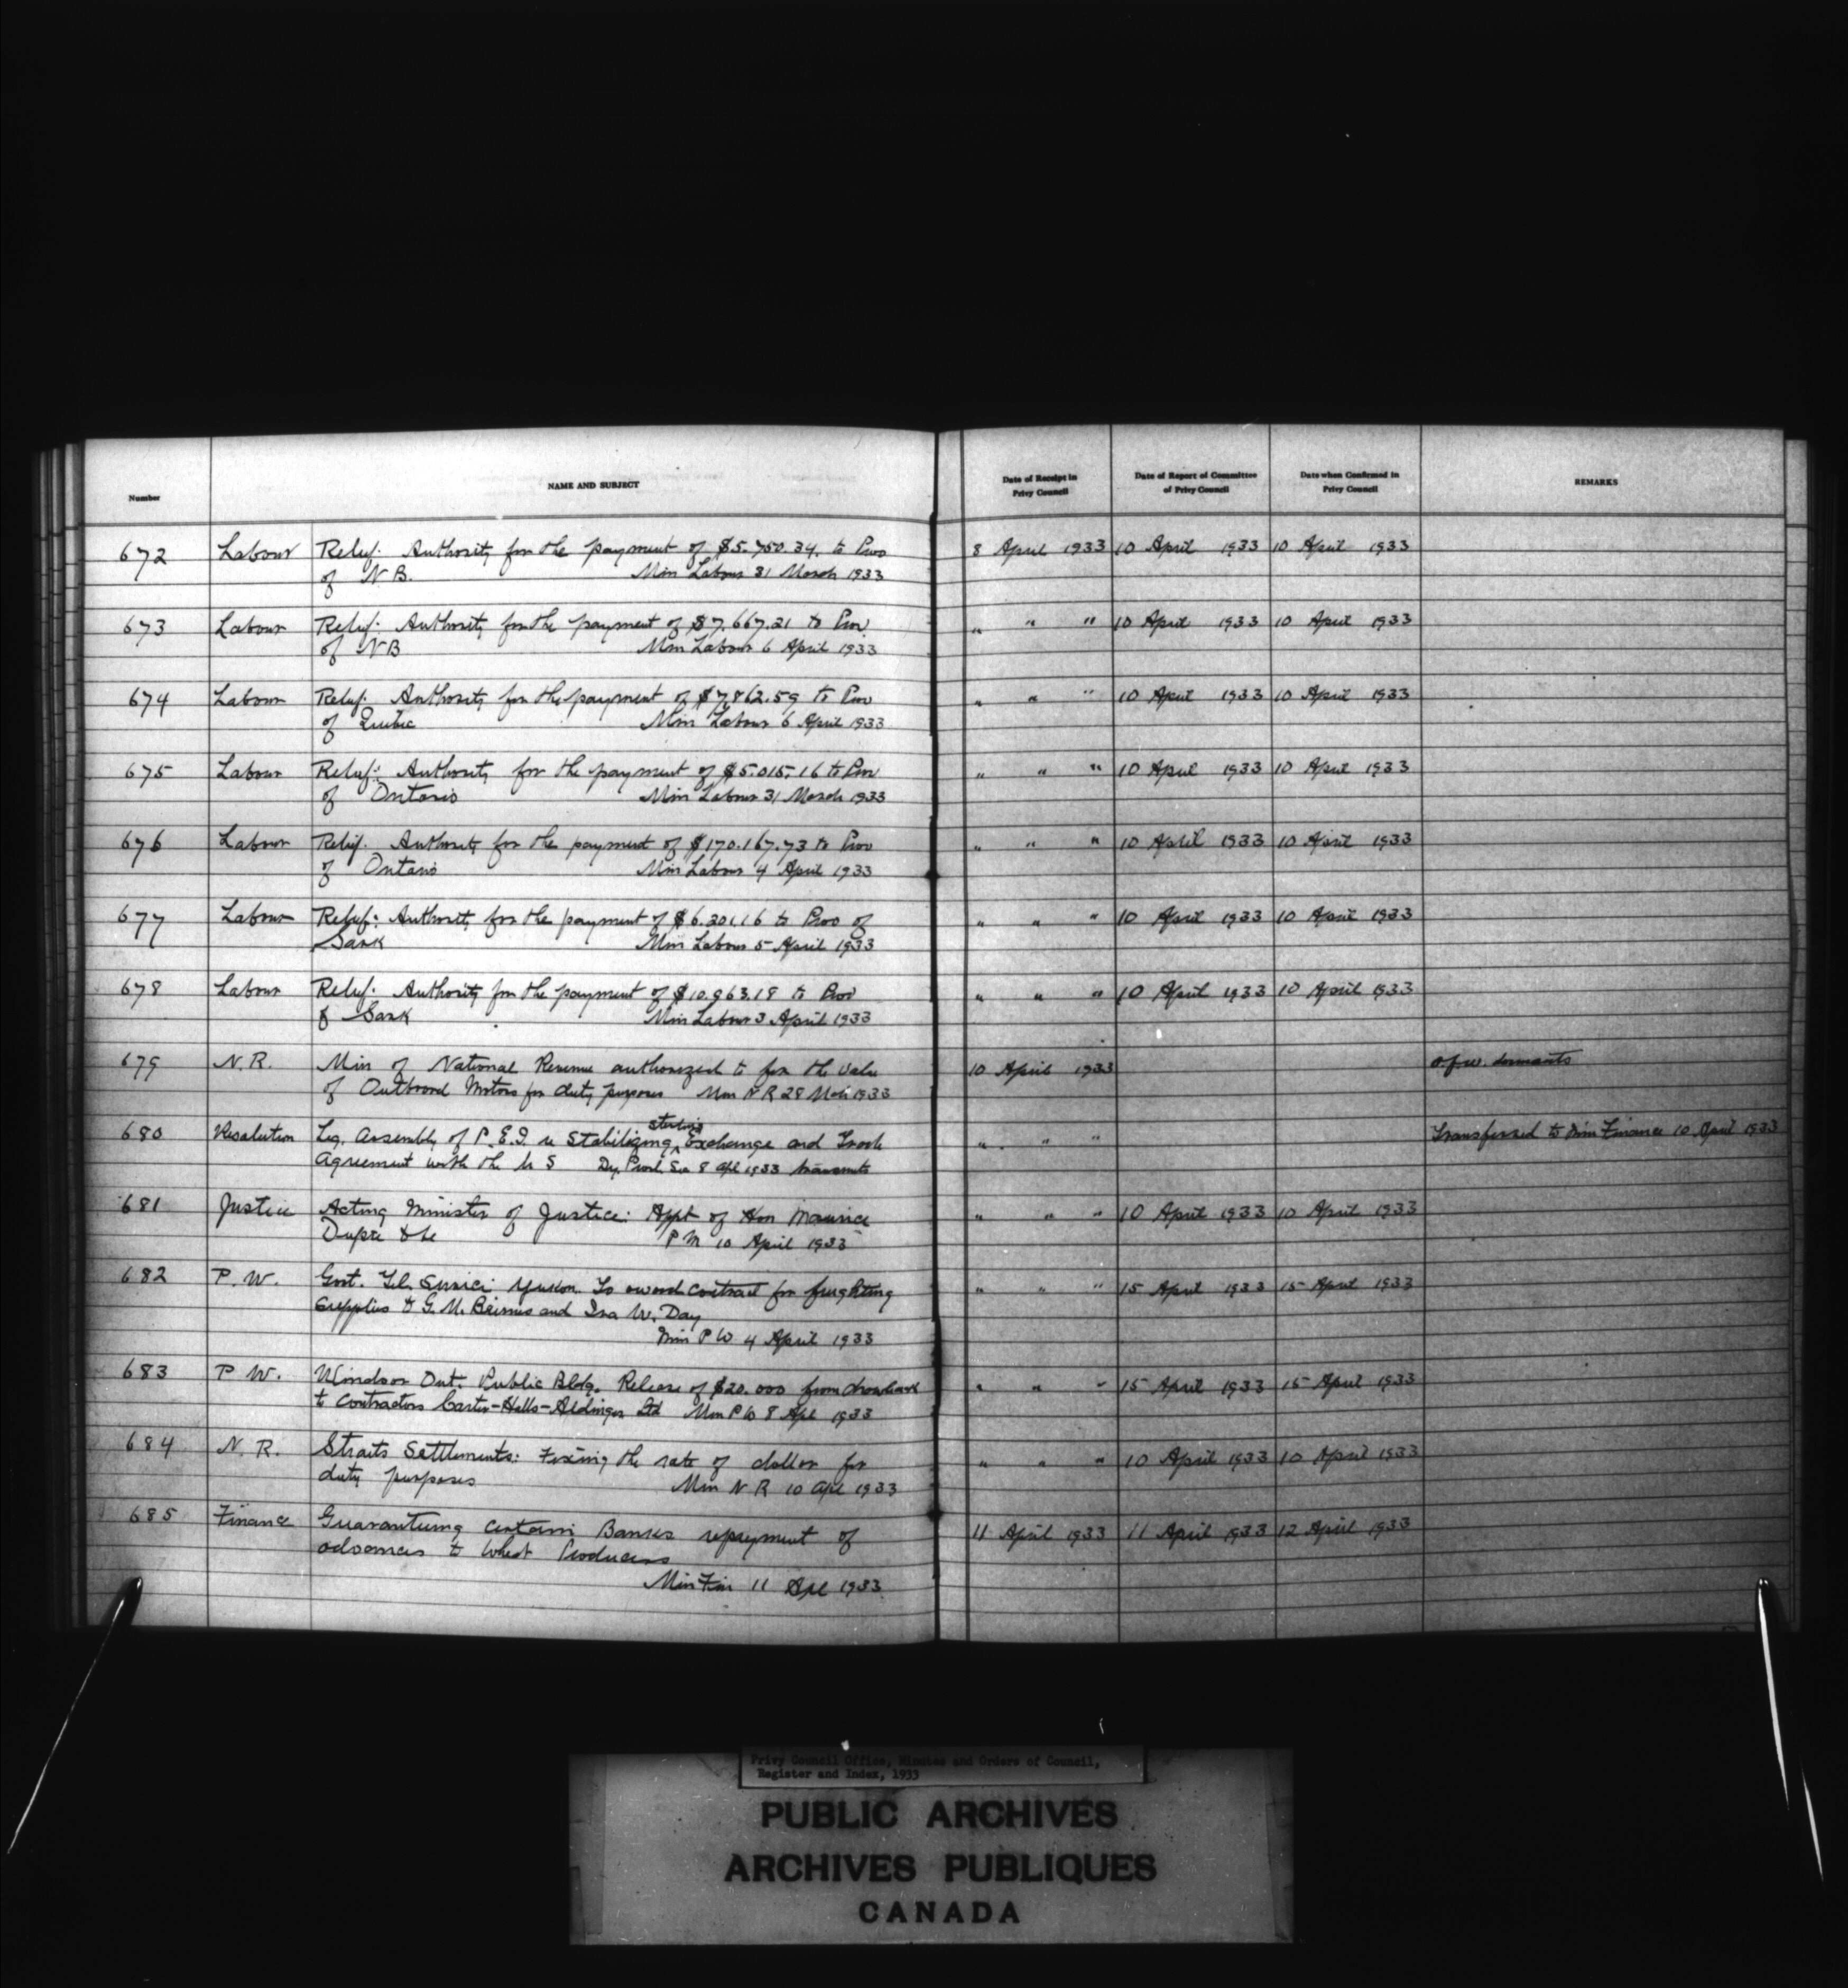 Number
NAME AND SUBJECT
Date of Receipt in Privy Council
Date of Report of Committee of Privy Council
Date when Confirmed in Privy Council
REMARKS
672 Labour Relief: Authority for the payment of $5.750.34. to Prov 8 April 1933 10 April 1933 10 April 1933
of N B. Min Labour 31 March 1933
673 Labour Relief: Authority for the payment of $7.667.21 to Prov. " " " 10 April 1933 10 April 1933
of NB Min Labour 6 April 1933
674 Labour Relief: Authority for the payment of $7,862.59 to Prov " " " 10 April 1933 10 April 1933
of Quebec Min Labour 6 April 1933
675 Labour Relief: Authority for the payment of $5.015.16 to Prov " " " 10 April 1933 10 April 1933
of Ontario Min Labour 31 March 1933
676 Labour Relief. Authority for the payment of $170.167.73 to Prov " " " 10 April 1933 10 April 1933
of Ontario Min Labour 4 April 1933
677 Labour Relief: Authority for the payment of $6.301.16 to Prov of " " " 10 April 1933 10 April 1933
Sask Min Labour 5 April 1933
678 Labour Relief. Authority for the payment of $10.963.18 to Prov " " " 10 April 1933 10 April 1933
of Sask Min Labour 3 April 1933
679 N. R. Min of National Revenue authorized to fix the value 10 April 1933 dormants
of Outboard Motors for duty purposes Min N R 28 Mch 1933
680 Resolution Leg. Assembly of P.E.I. re Stabilizing sterling Exchange and Trade " " " Transferred to Min Finance 10 April 1933
Agreement with the U S Dy. Provl. Sec 8 Apl 1933 transmits
681 Justice Acting Minister of Justice: Appt of Hon Maurice " " " 10 April 1933 10 April 1933
Dupre to be P M 10 April 1933
682 P. W. Govt. Tel. Service Yukon. To award contract for freighting " " " 15 April 1933 15 April 1933
supplies to G. M. and Ira W. Day
Min P W 4 April 1933
683 P W. Windsor Ont. Public Bldg. Release of $20.000 from drawback " " " 15 April 1933 15 April 1933
to Contractors Carter-Halls-Aldinger Ltd Min P W 8 Apl 1933
684 N. R. Straits Settlements: Fixing the rate of dollar for " " " 10 April 1933 10 April 1933
duty purposes Min N R 10 Apl 1933
685 Finance Guaranteeing certain Banks repayment of 11 April 1933 11 April 1933 12 April 1933
advances to Wheat Producers
Min Fin 11 Apl 1933
Privy Council Office, Minutes and Orders of Council,
Register and Index, 1933
PUBLIC ARCHIVES
ARCHIVES PUBLIQUES
CANADA